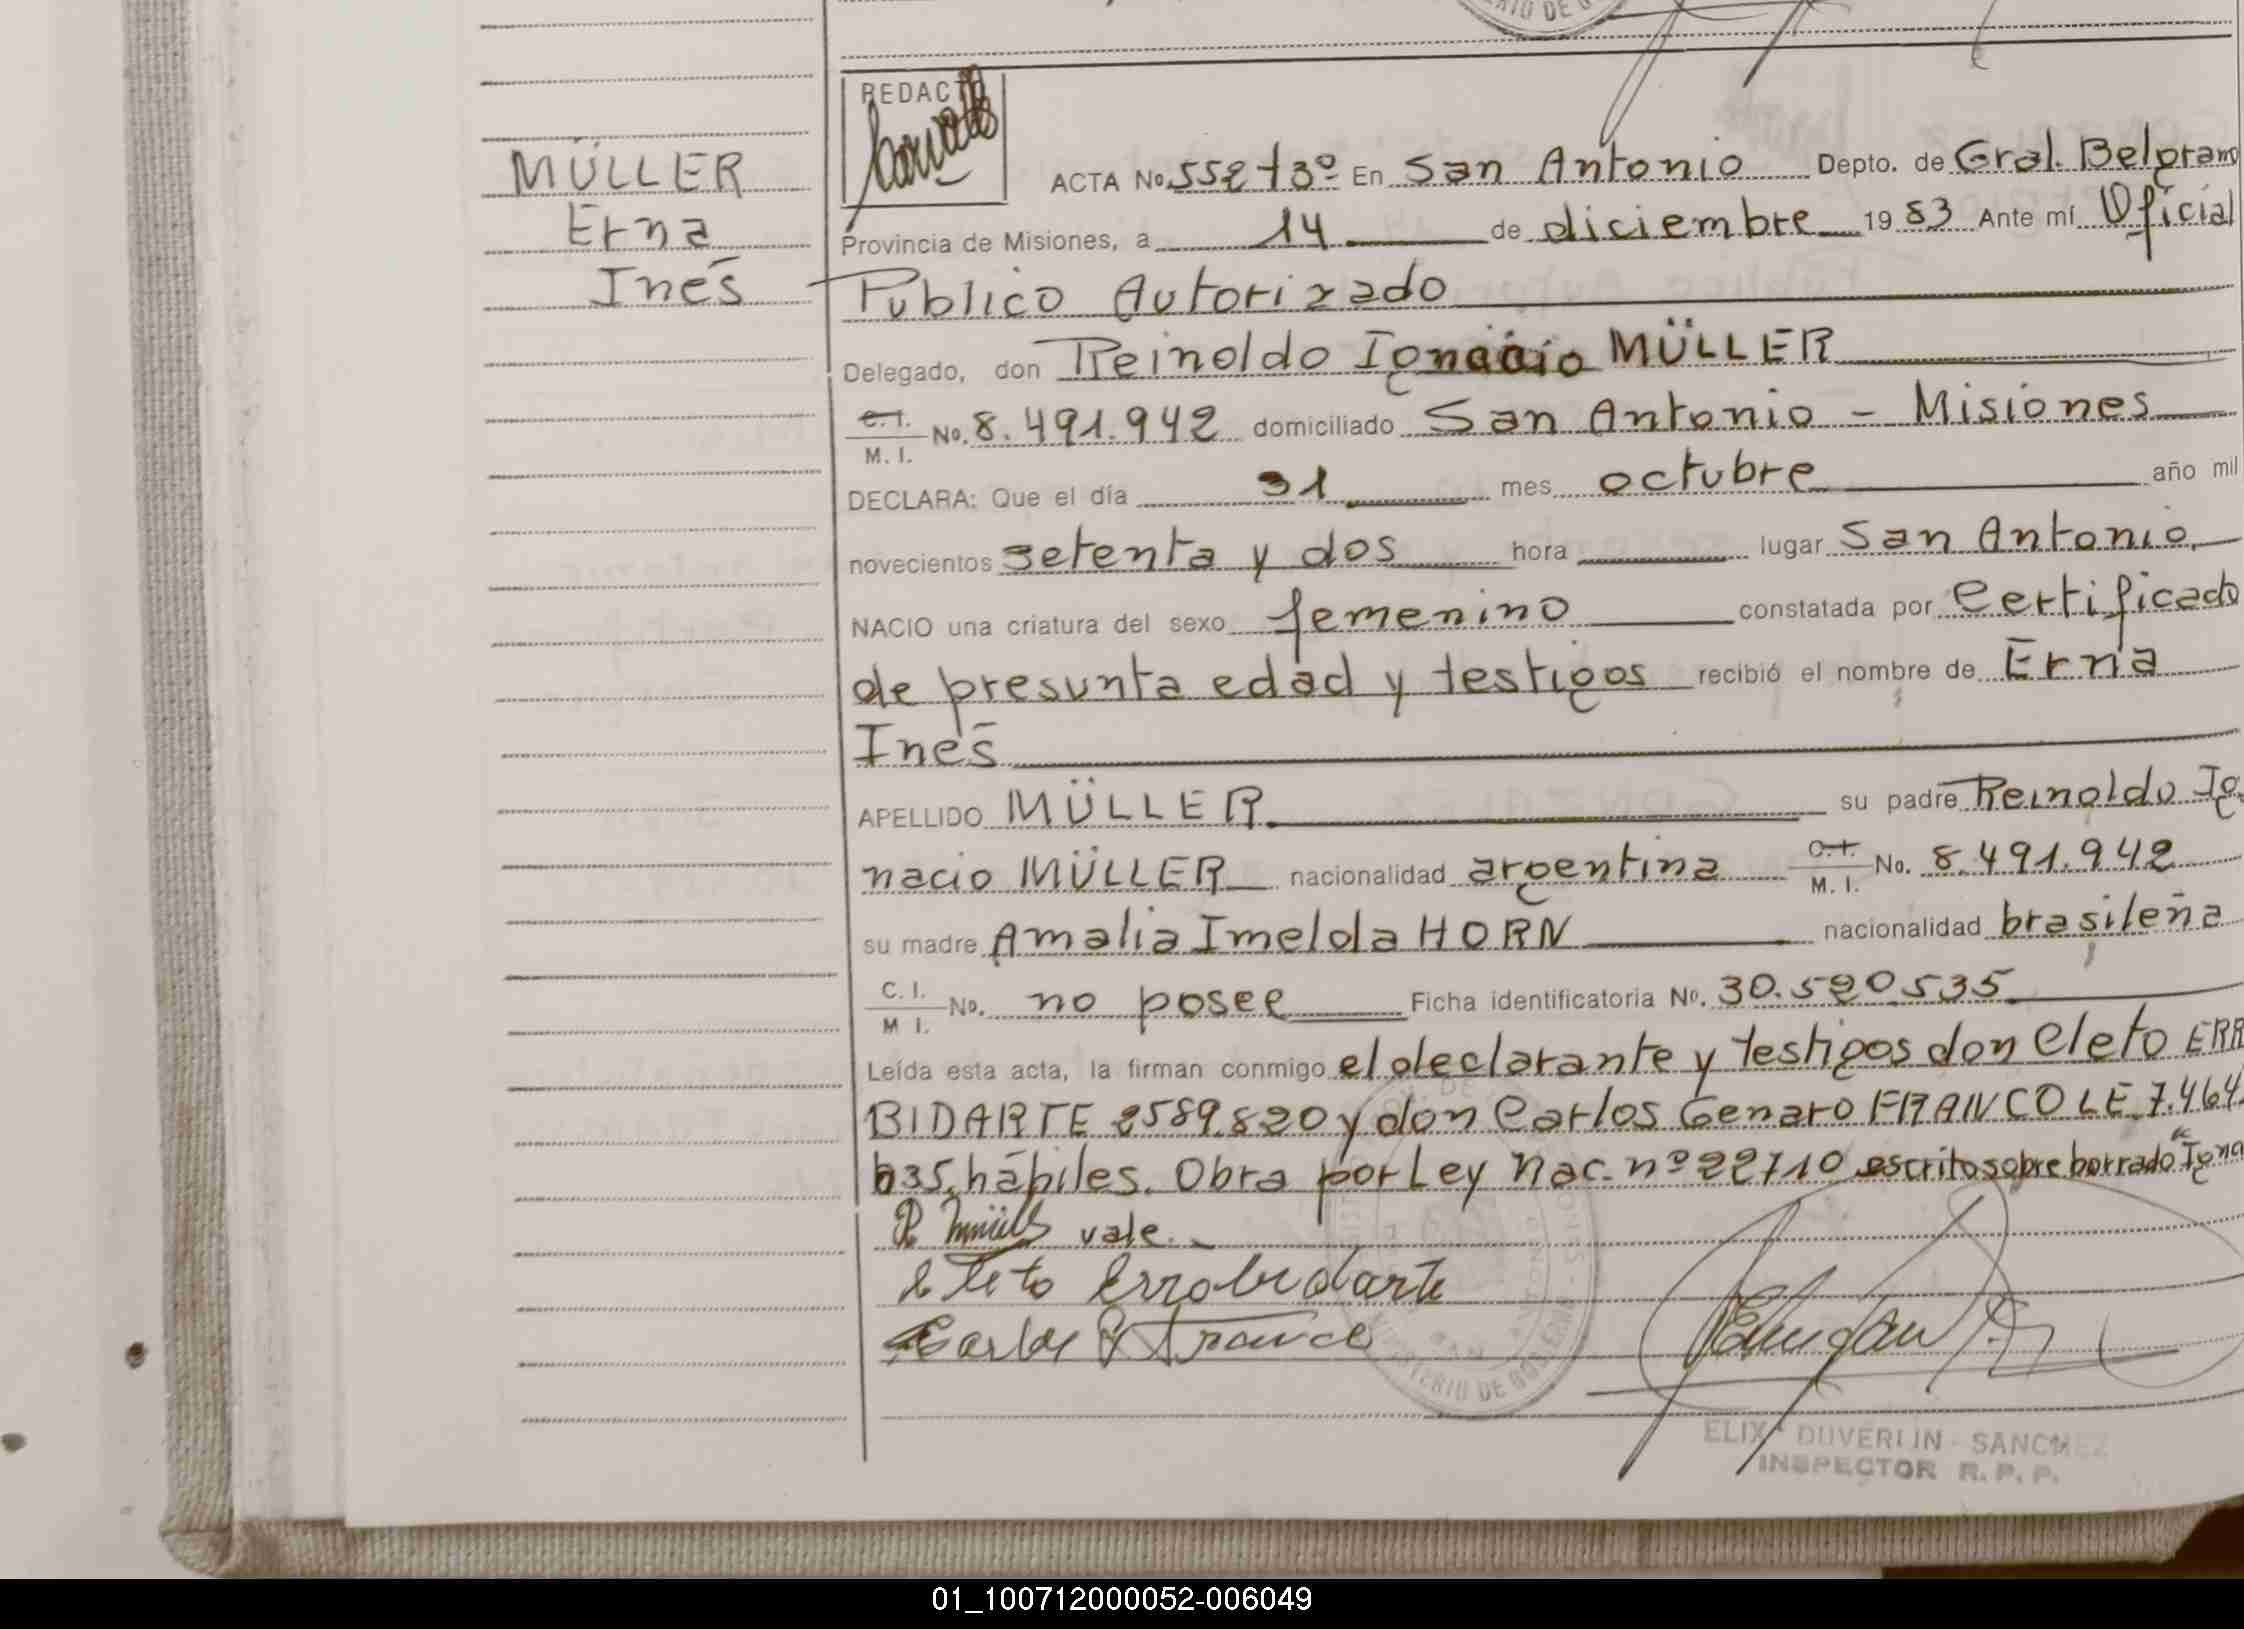 MÜLLER
Erna
Inés
REDACTO
ACTA No. 552 T 3º En San Antonio Depto. de Gral. Belgrano
Provincia de Misiones, a 14 de diciembre 1983 Ante mí Oficial
Publico Autorizado
Delegado, don Reinoldo Ignacio MÜLLER
C.I. / M.I. No. 8.491.942 domiciliado San Antonio - Misiones
DECLARA: Que el día 31 mes octubre año mil
novecientos setenta y dos hora lugar San Antonio
NACIO una criatura del sexo femenino constatada por Certificado
de presunta edad y testigos recibió el nombre de Erna
Inés
APELLIDO MÜLLER su padre Reinoldo Ig
nacio MÜLLER nacionalidad argentina C.I. / M.I. No. 8.491.942
su madre Amalia Imelda HORN nacionalidad brasileña
C.I. / M I. No. no posee Ficha identificatoria No. 30.520.535
Leída esta acta, la firman conmigo el declarante y testigos don Cleto ERR
BIDARTE 2589.820 y don Carlos Genaro FRANCO LE 7.464.
635, hábiles. Obra por Ley Nac. nº 22710 escrito sobre borrado "Igna
R Müller vale.
Cleto Errobidarte
Carlos G Franco
MINISTERIO DE GOBIERNO
ELIX DUVERLIN SANCHEZ
INSPECTOR R. P. P.
01_100712000052-006049